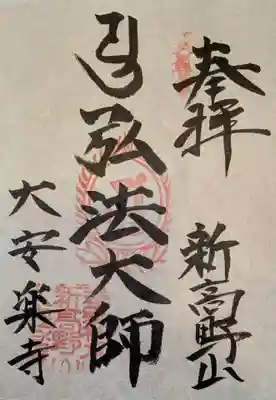 奉拝
新高野山
弘法大師
大安楽寺